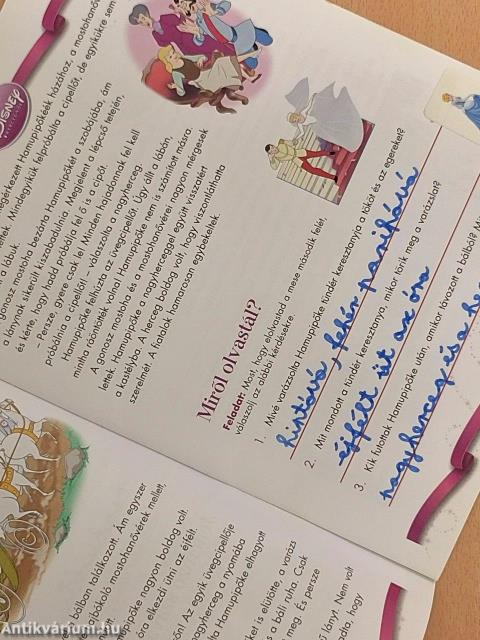 DISNEY
megérkezett Hamupipőkéék házához, a mostohanő
lettek. Mindegyikük felpróbálta a cipellőt, de egyikükre sem
a lábuk.
gonosz mostoha bezárta Hamupipőkét a szobájába, ám
a lánynak sikerült kiszabadulnia. Megjelent a lépcső tetején,
és kérte, hogy hadd próbálja fel ő is a cipőt.
– Persze, gyere csak le! Minden hajadonnak fel kell
próbálnia a cipellőt! – válaszolta a nagyherceg.
Hamupipőke felhúzta az üvegcipellőt. Úgy állt a lábán,
mintha ráöntötték volna! Hamupipőke nem is számított másra.
A gonosz mostoha és a mostohanővérei nagyon mérgesek
lettek. Hamupipőke a nagyherceggel együtt visszatért
a kastélyba. A herceg boldog volt, hogy viszontláthatta
szerelmét. A fiatalok hamarosan egybekeltek.
Miről olvastál?
Feladat: Most, hogy elolvastad a mese második felét,
válaszolj az alábbi kérdésekre.
1. Mivé varázsolta Hamupipőke tündér keresztanyja a tököt és az egereket?
hintóvá, fehér paripává
2. Mit mondott a tündér keresztanya, mikor törik meg a varázslat?
éjfélt üt az óra
3. Kik futottak Hamupipőke után, amikor távozott a bálból?
nagyherceg és a he
álban találkozott. Ám egyszer
bókoló mostohanővérek mellett,
pipőke nagyon boldog volt.
óra elkezdi ütni az éjfélt.
Az egyik üvegcipellője
nagyherceg a nyomába
Hamupipőke elhagyott
is elütötte, a varázs
a báli ruha. Csak
meg. És persze
lányt. Nem volt
hogy
Antikvárium.hu